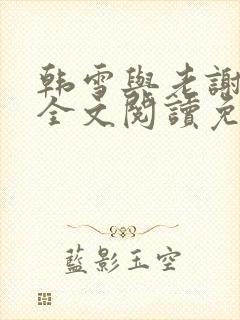 韩雪與老謝
全文閱讀免
藍影玉空